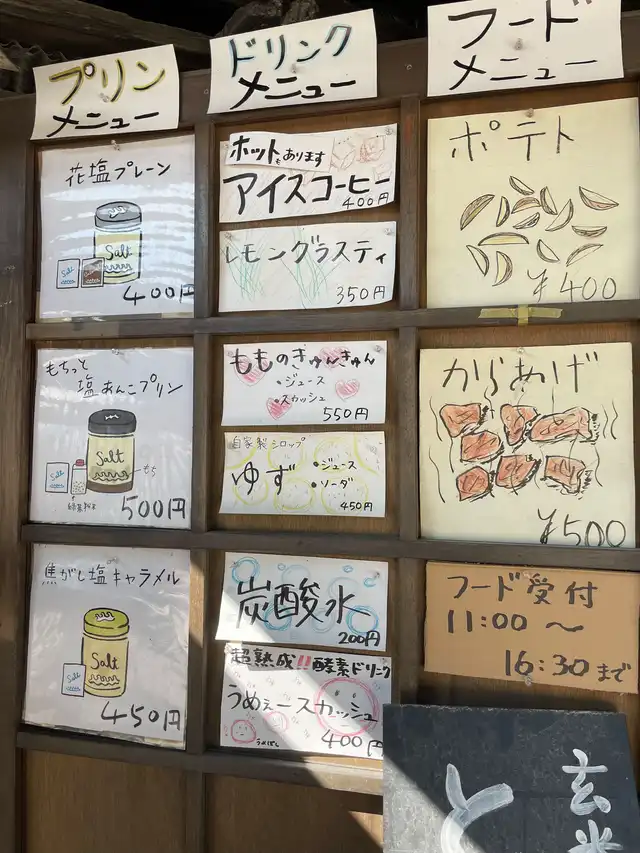 プリン
メニュー
花塩プレーン
Salt
Salt
400円
もちっと
塩あんこプリン
Salt
Salt
もち
500円
焦がし塩キャラメル
Salt
Salt
450円
ドリンク
メニュー
ホットもあります
アイスコーヒー
400円
レモングラスティ
350円
もものきゅんきゅん
・ジュース
・スカッシュ
550円
自家製シロップ
ゆず
・ジュース
・ソーダ
450円
炭酸水
200円
超熟成!!酵素ドリンク
うめぇースカッシュ
400円
フード
メニュー
ポテト
¥400
からあげ
¥500
フード受付
11:00～
16:30まで
玄米
と